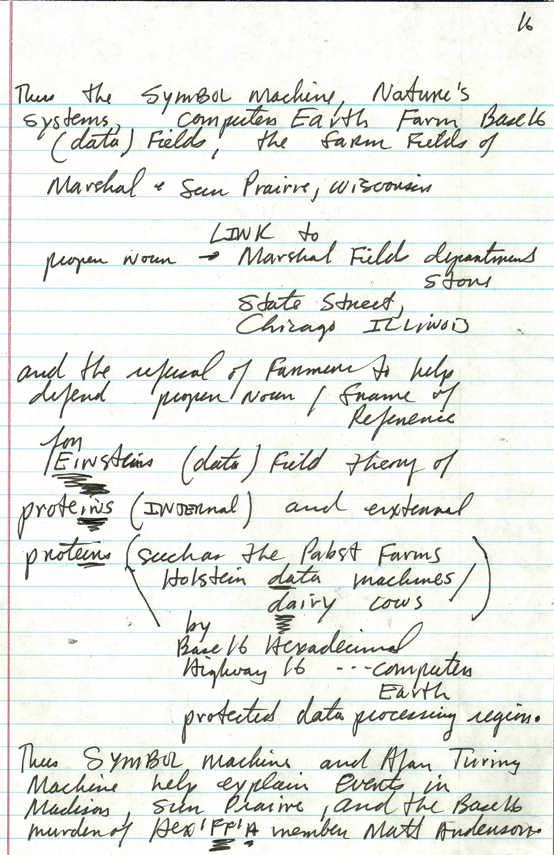 16
Thus the Symbol machine, Nature's
systems, computer Earth Farm Base 16
(data) Fields, the farm Fields of
Marshal & Sun Prairre, Wisconsin
LINK to
proper noun → Marshal Field department
store
State Street,
Chicago ILLINOIS
and the refusal of Farmers to help
defend proper Noun / Frame of
Reference
for
Einsteins (data) Field theory of
proteins (INTERNAL) and external
proteins (such as the Pabst Farms
Holstein data machines /
dairy cows )
by
Base 16 Hexadecimal
Highway 16 --- computer
Earth
protected data processing region.
Thus Symbol machine and Alan Turing
Machine help explain Events in
Madison, Sun Prairre, and the Base 16
murder of Hex 'FF'A member Matt Anderson.